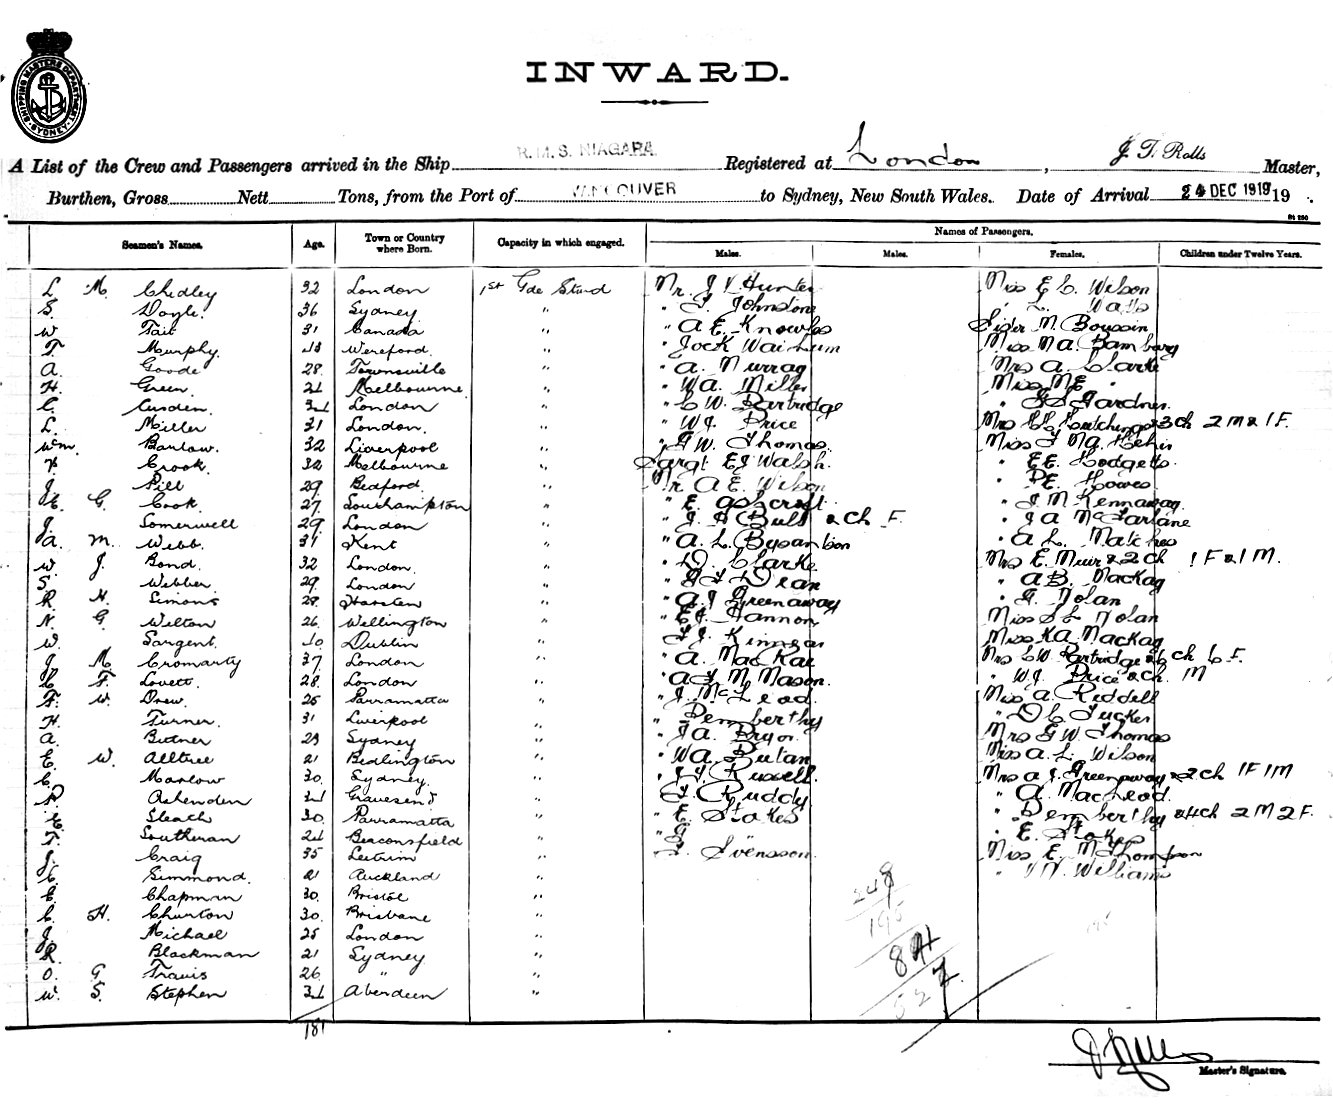 SHIPPING MASTERS DEPARTMENT SYDNEY
INWARD.
A List of the Crew and Passengers arrived in the Ship R.M.S. NIAGARA Registered at London, J T. Rolls Master,
Burthen, Gross Nett Tons, from the Port of VANCOUVER to Sydney, New South Wales. Date of Arrival 24 DEC 1919 19 .
Seamen's Names. Age. Town or Country where Born. Capacity in which engaged. Names of Passengers.
Males. Males. Females. Children under Twelve Years.
L M. Chidley 32 London 1st Gde Stwd Mr. J V Hunter Miss E C. Wilson
S. Doyle. 36 Sydney " " T Johnstone " L. Watts
W Tait 31 Canada " " A E. Knowles Sister M. Boussin
T. Murphy. Wereford. " " Jock Waihum Miss M A. Bambery
A. Goode 28 Townsville " " A. Murray Mrs A. Clarke
H. Green. 21 Melbourne " " W A. Miller Miss ME "
C. Cusden. London " " C W. Partridge " Gardner.
L. Miller 31 London. " " W J. Price Mrs Hutchings & 3ch 2 M & 1 F.
Wm. Barlow. 32 Liverpool " " G W. Thomas Miss
Crook. 32 Melbourne " Sargt E J Walsh. " E E. Hodgetts.
J. Pill 29 Bedford. " Mr A E. Wilson " P E. Howes
E. G. Cook. 27 Southampton " " E. Ashcroft " J M. Kennaway
J. Somerwell 29 London " " J. H Bull & Ch F. " J A McFarlane
A. M. Webb. 31 Kent " " A. L. Bysantson " A L. Matches
W. J. Bond. 32 London. " " D. Clarke Mrs E. Muir & 2 Ch 1 F & 1 M.
S. Webber 29 London " " Dean " A B. Mackay
R H. Simons 28 " " A. J Greenaway " G. Nolan
N. G. Wilton 26 Wellington " " E J. Hannon Miss S L Nolan
W. Sargent. Dublin " " Kinnear Miss K A. Mackay
J. M. Cromarty 37 London " " A. MacRae Mrs C W. Partridge & Ch F.
C F. Lovett. 28 London " " A J. M. Mason. " W J. Price & ch. M
F. W. Drew. 25 Parramatta " " J. McLeod Miss A. Riddell
H. Turner. 31 Liverpool " " Pemberthy " D C Tucker
A. Butner 23 Sydney " " J A. Pryor. Mrs G W Thomas
E. W. Alltree 21 Bedlington " " W A. Butan Miss A. L. Wilson
C. Marlow 30 Sydney. " " Russell. Mrs A J. Greenaway & 2ch 1F 1M
Ashenden Gravesend " " Ruddy " A. MacLeod.
E. Sleath 30 Parramatta " " E. Stokes " Pemberthy & 4ch 2 M 2 F.
T. Southeran Beaconsfield " " " E. Stokes
J. Craig 35 Leitrim " " Svensson. Miss E. M Thompson
C. Simmond. 21 Auckland " " Williams
E. Chapman 30. Bristol "
C. H. Churton 30. Brisbane "
J. Michael 25 London "
R. Blackman 21 Sydney "
O. G. Travis 26 " "
W. S. Stephen Aberdeen "
248
195
181
Master's Signature.